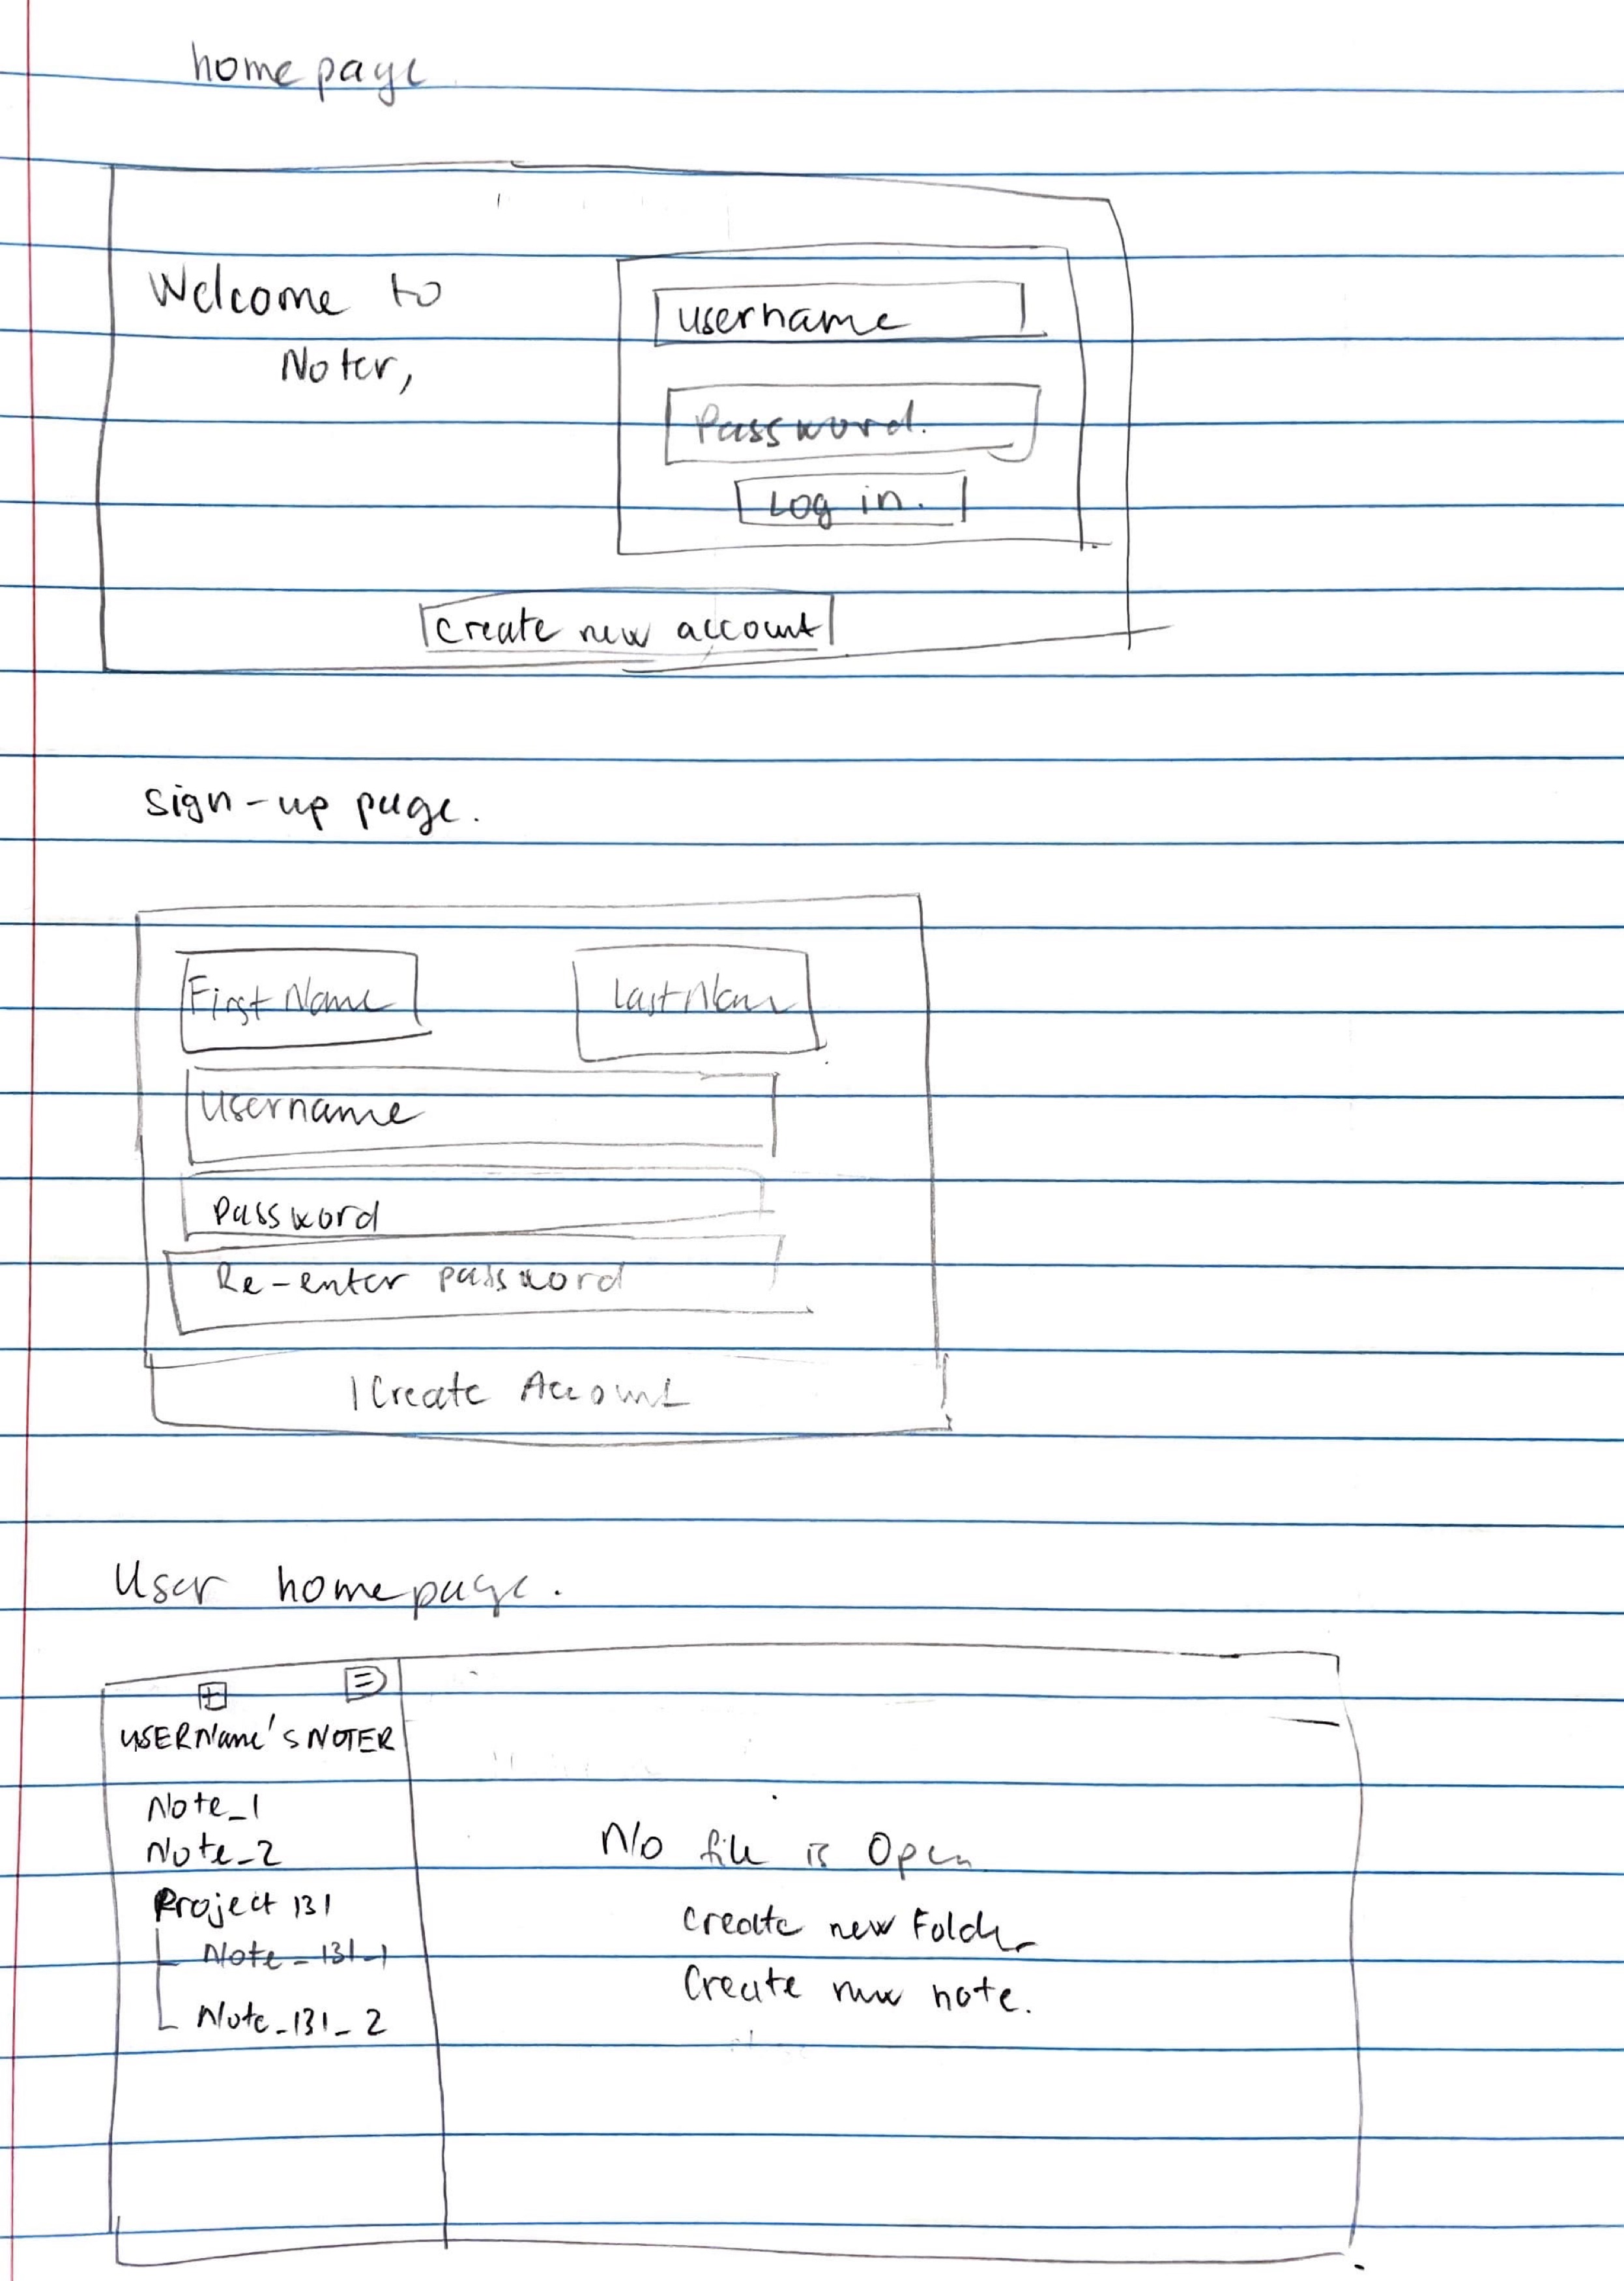 homepage
Welcome to
Noter,
username
Password.
Log in.
create new account
sign-up page.
First Name
Last Name
username
password
Re-enter password
Create Account
User homepage.
USERName's NOTER
Note_1
Note_2
Project 131
Note_131_1
Note_131_2
No file is Open
create new Folder
Create new note.